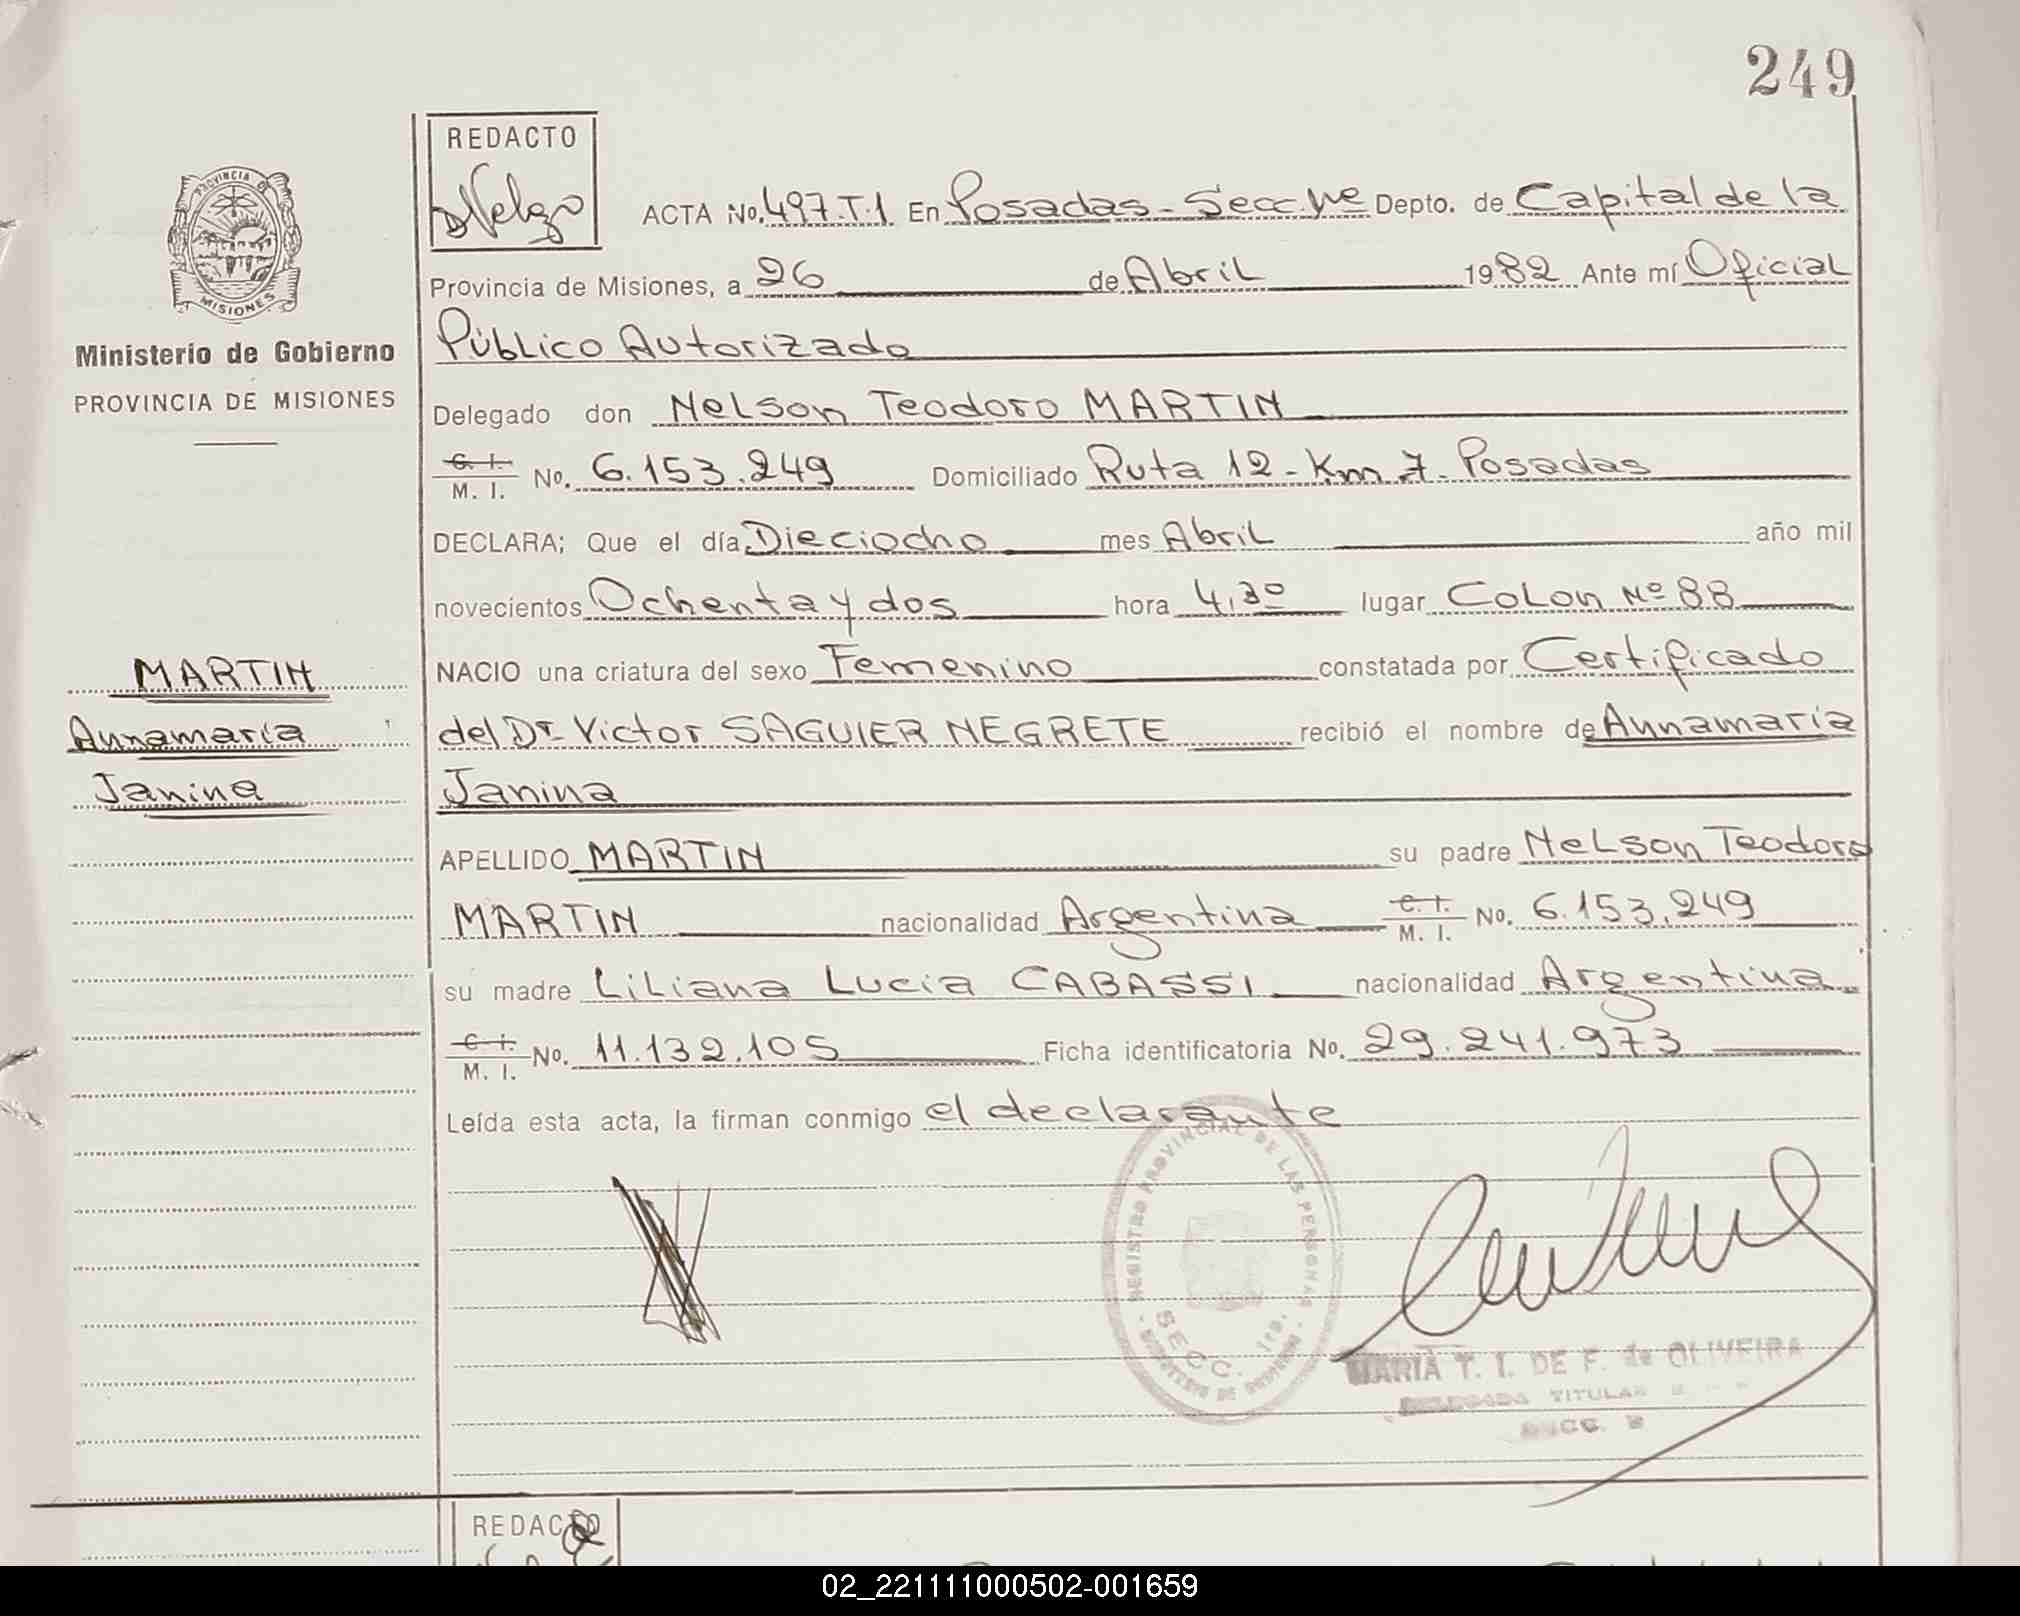 249
REDACTO
ACTA No. 497.T.1 En Posadas - Secc. 1re Depto. de Capital de la
PROVINCIA DE
MISIONES
Provincia de Misiones, a 26 de Abril 1982 Ante mí Oficial
Ministerio de Gobierno
Público Autorizado
PROVINCIA DE MISIONES
Delegado don Nelson Teodoro MARTIN
C. I.
M. I. No. 6.153.249 Domiciliado Ruta 12 - Km 7. Posadas
DECLARA; Que el día Dieciocho mes Abril año mil
novecientos Ochenta y dos hora 4,30 lugar Colon Nº 88
MARTIN
NACIO una criatura del sexo Femenino constatada por Certificado
Annamaría
del Dr. Victor SAGUIER NEGRETE recibió el nombre de Annamaría
Janina
Janina
APELLIDO MARTIN su padre Nelson Teodoro
MARTIN nacionalidad Argentina C. I. M. I. No. 6.153.249
su madre Liliana Lucia CABASSI nacionalidad Argentina
C. I.
M. I. No. 11.132.105 Ficha identificatoria No. 29.241.973
Leída esta acta, la firman conmigo el declarante
REGISTRO PROVINCIAL DE LAS PERSONAS
SECC. 1ra.
MARIA T. I. DE F. de OLIVEIRA
DELEGADA TITULAR
SECC.
REDACTO
02_221111000502-001659